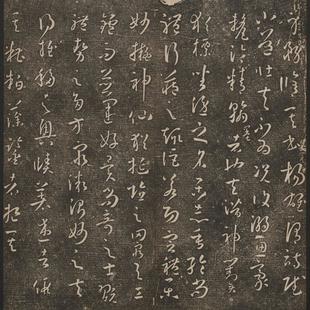 揚雄謂詩賦
小道壯夫不為況復溺思毫
釐淪精翰墨者也夫潛神對奕
猶標坐隱之名樂志垂綸尚
體行藏之趣詎若功宣禮樂
妙擬神仙猶埏埴之罔窮與工
鑪而並運好異尚奇之士翫
體勢之多方窮微測妙之夫
得推移之奧賾著述者假
其糟粕藻鑒者挹其